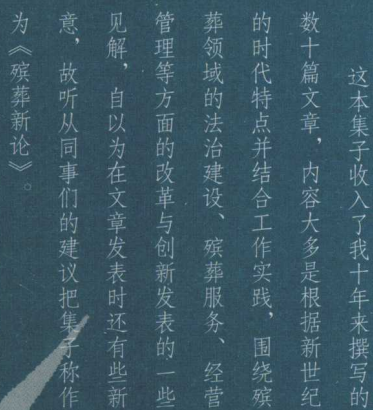 这本集子收入了我十年来撰写的
数十篇文章，内容大多是根据新世纪
的时代特点并结合工作实践，围绕殡
葬领域的法治建设、殡葬服务、经营
管理等方面的改革与创新发表的一些
见解，自以为在文章发表时还有些新
意，故听从同事们的建议把集子称作
为《殡葬新论》。